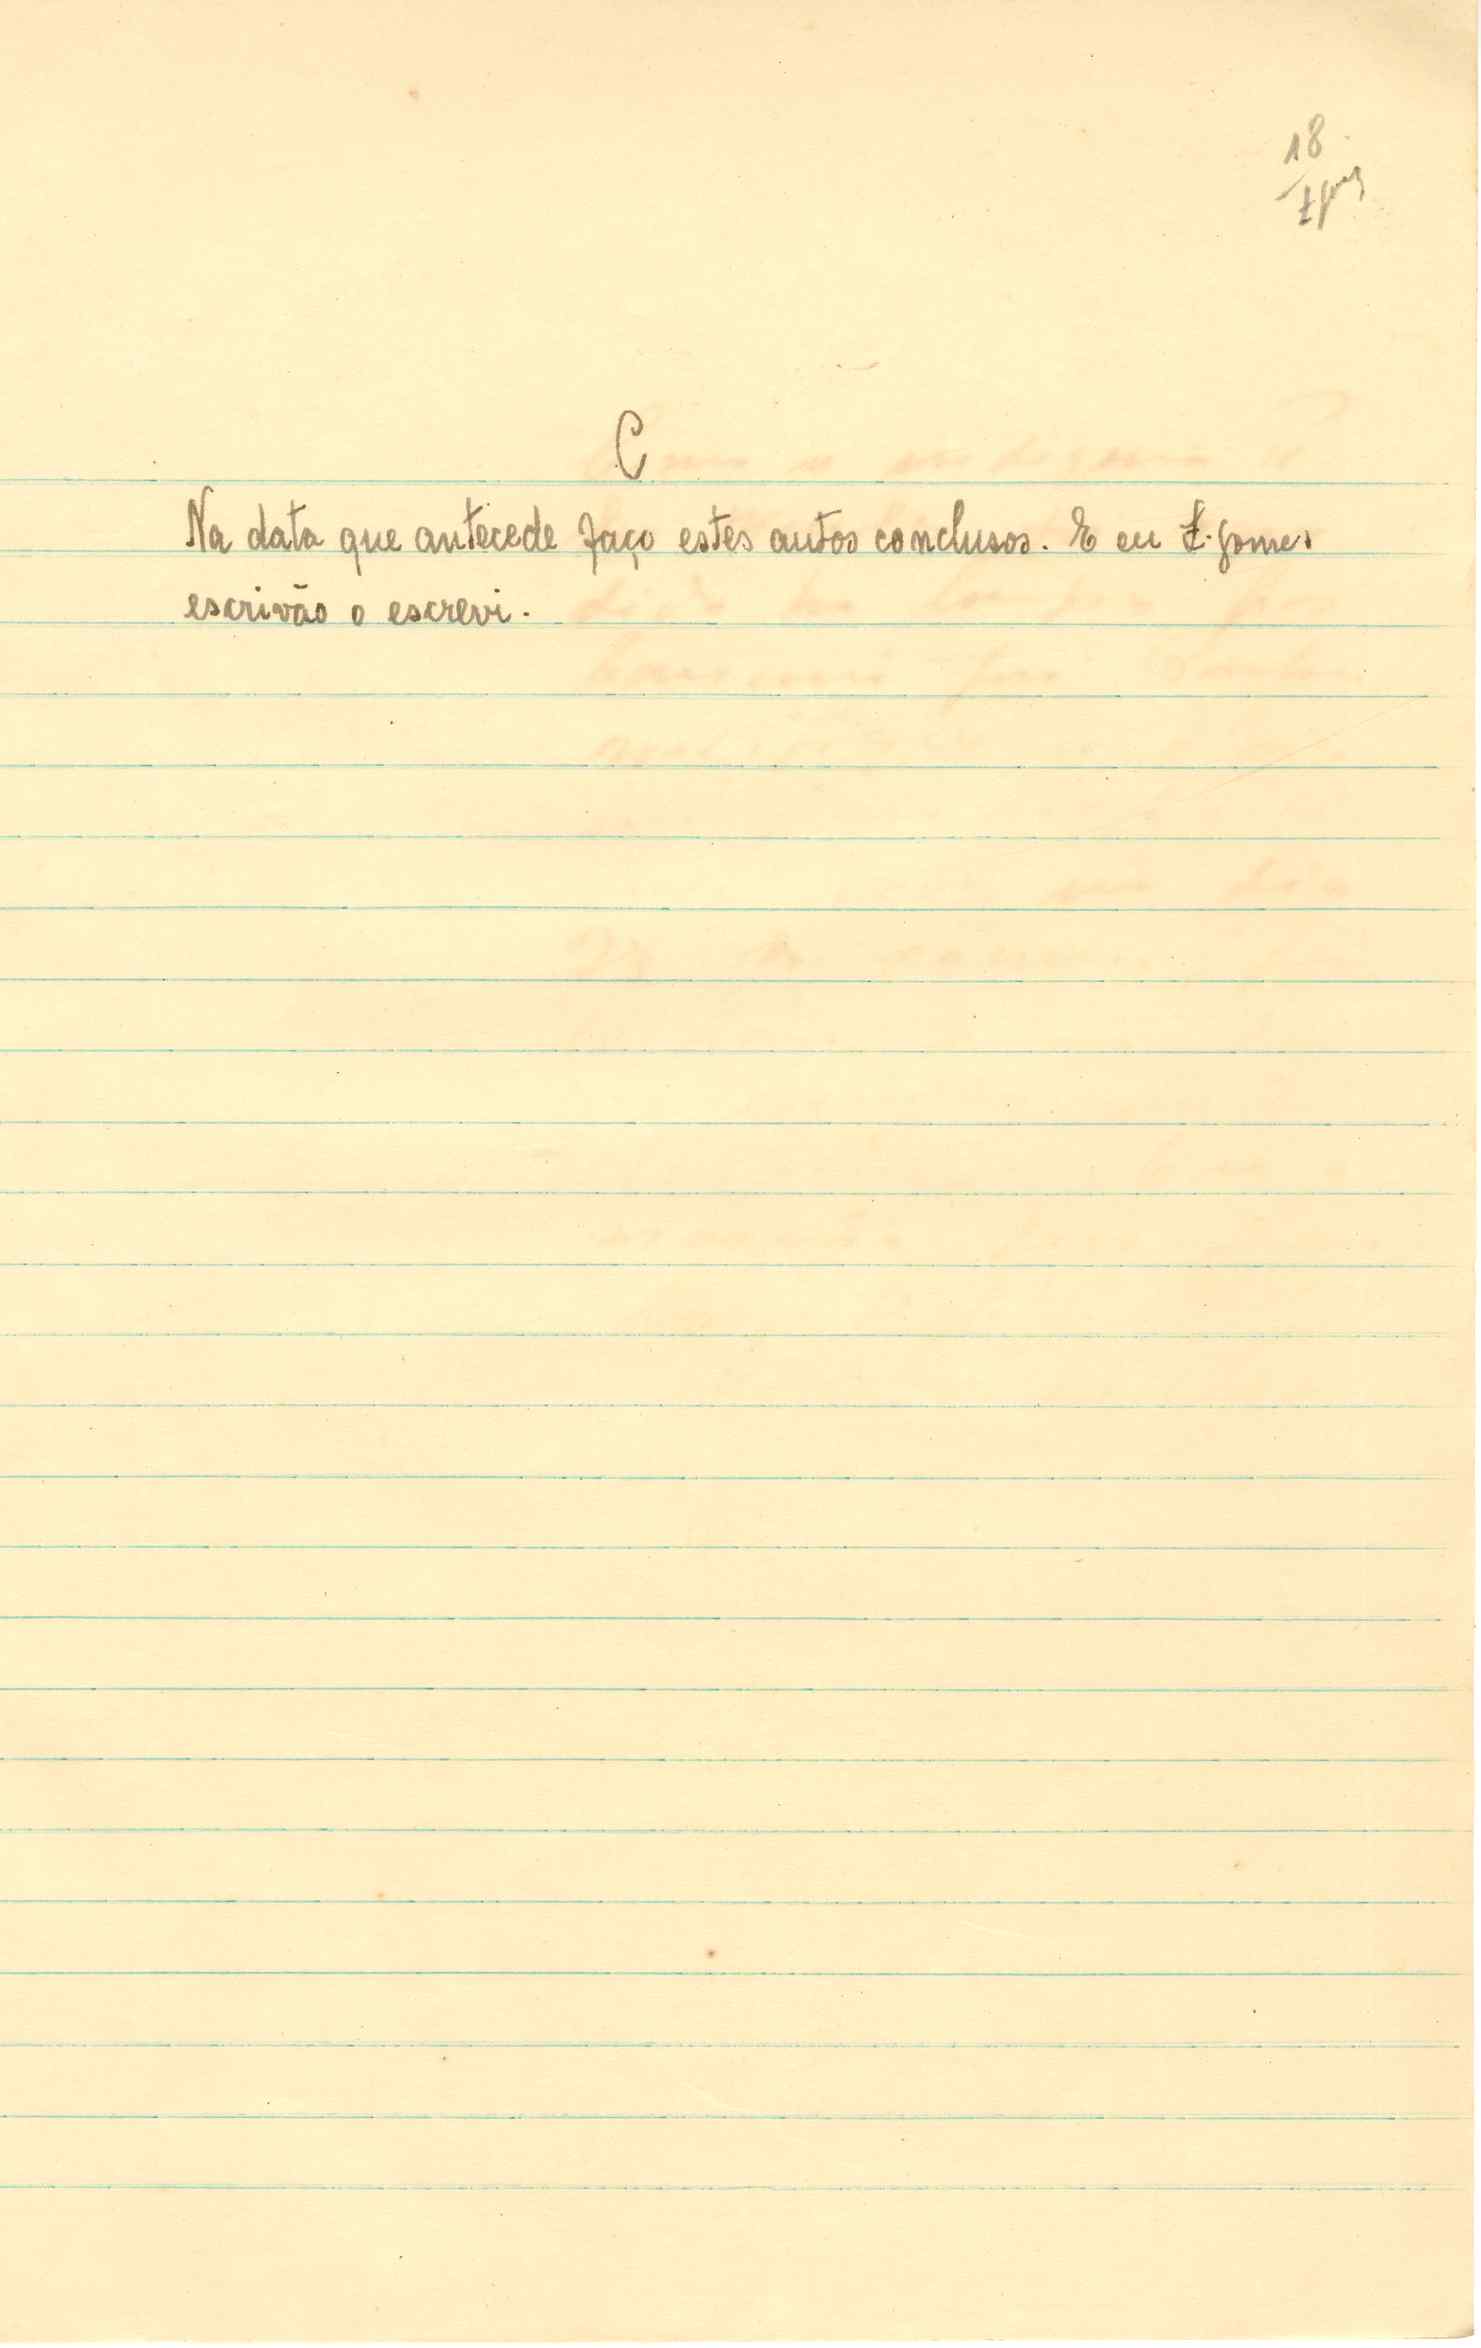 18
C
Na data que antecede faço estes autos conclusos. E eu Z. Gomes
escrivão o escrevi.